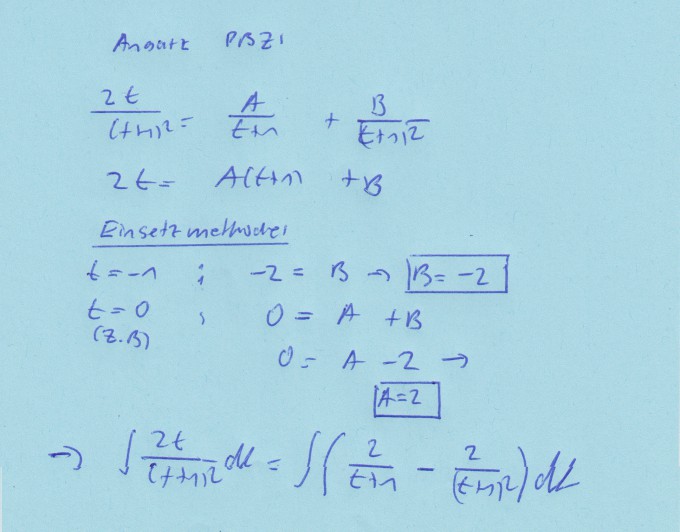 Ansatz PBZ:
2t/(t+1)² = A/(t+1) + B/(t+1)²
2t = A(t+1) + B
Einsetzmethode:
t=-1 ; -2 = B → B= -2
t=0 ; 0 = A + B
(z.B)
0 = A -2 →
A=2
→ ∫ 2t/(t+1)² dt = ∫ ( 2/(t+1) - 2/(t+1)² ) dt